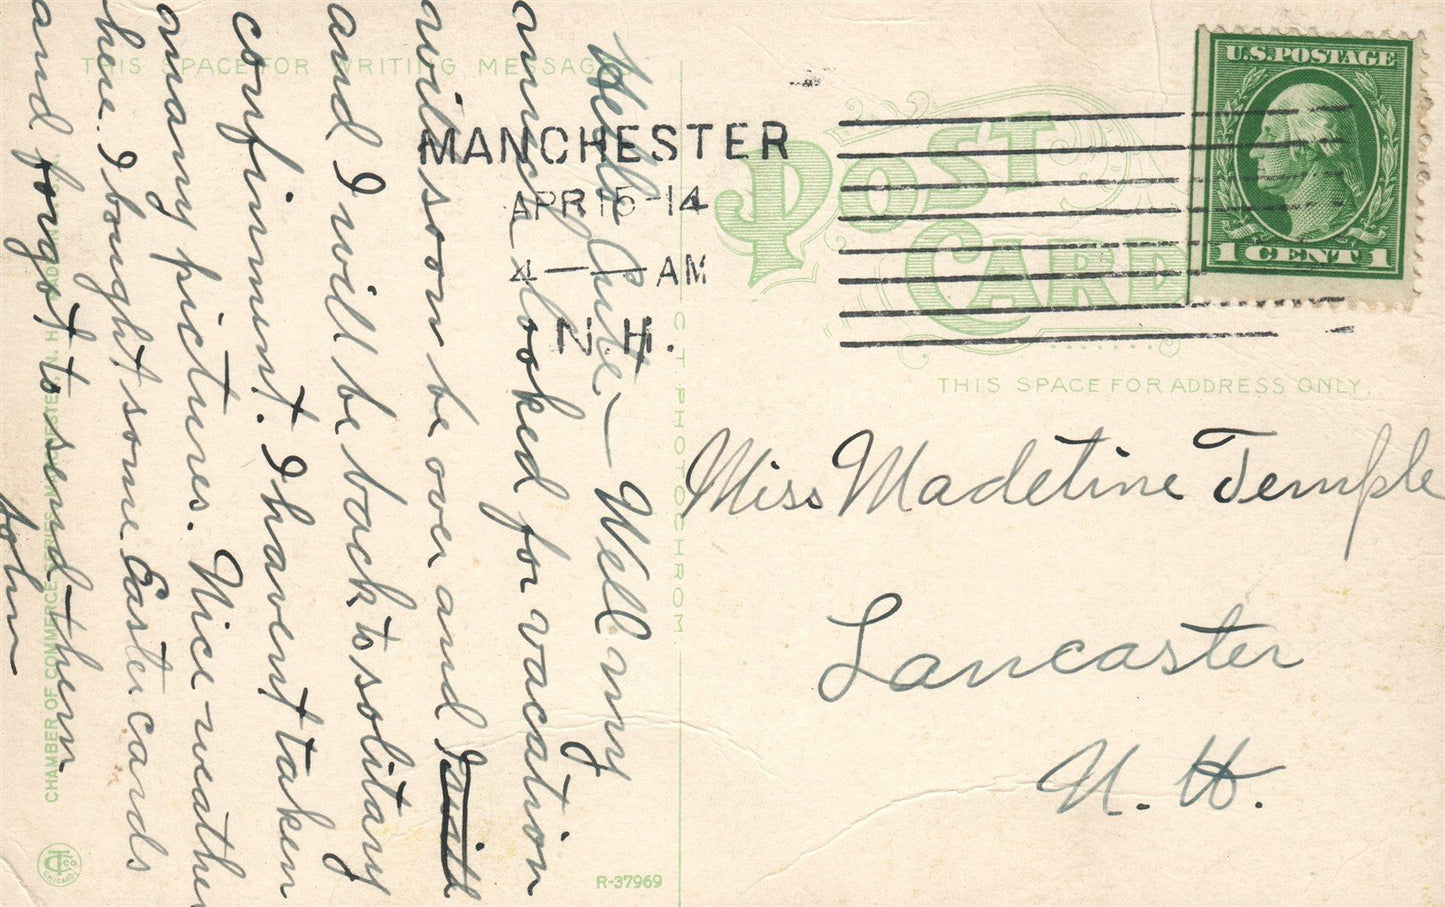 THIS SPACE FOR WRITING MESSAG
Hello Cute — Well my
much looked for vacation
will soon be over and I
and I will be back to solitary
confinment. I havent taken
many pictures. Nice weather
here. I bought some Easter cards
and forgot to send them
John
CHAMBER OF COMMERCE SERIES, MANCHESTER, N. H.
C. T. PHOTOCHROM
R-37969
MANCHESTER
APR 15-14
4 — AM
N.H.
U.S. POSTAGE
1 CENT 1
POST CARD
THIS SPACE FOR ADDRESS ONLY.
Miss Madeline Temple
Lancaster
N. H.